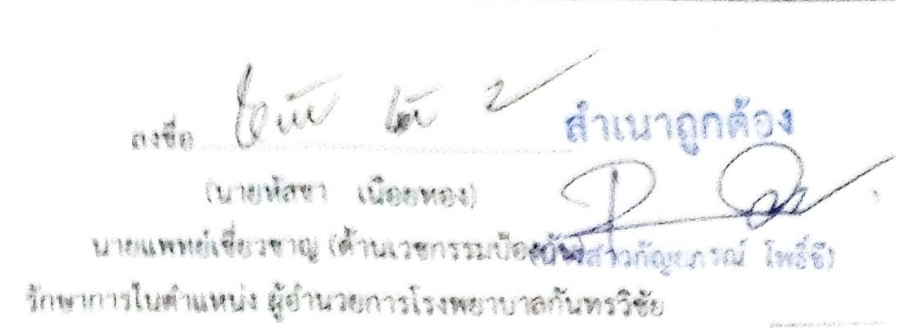 ลงชื่อ
สำเนาถูกต้อง
(นายหัสชา เนือยทอง)
นายแพทย์เชี่ยวชาญ (ด้านเวชกรรมป้องกัน)
นางสาวกัญยภรณ์ โพธิ์ชั)
รักษาการในตำแหน่ง ผู้อำนวยการโรงพยาบาลกันทรวิชัย